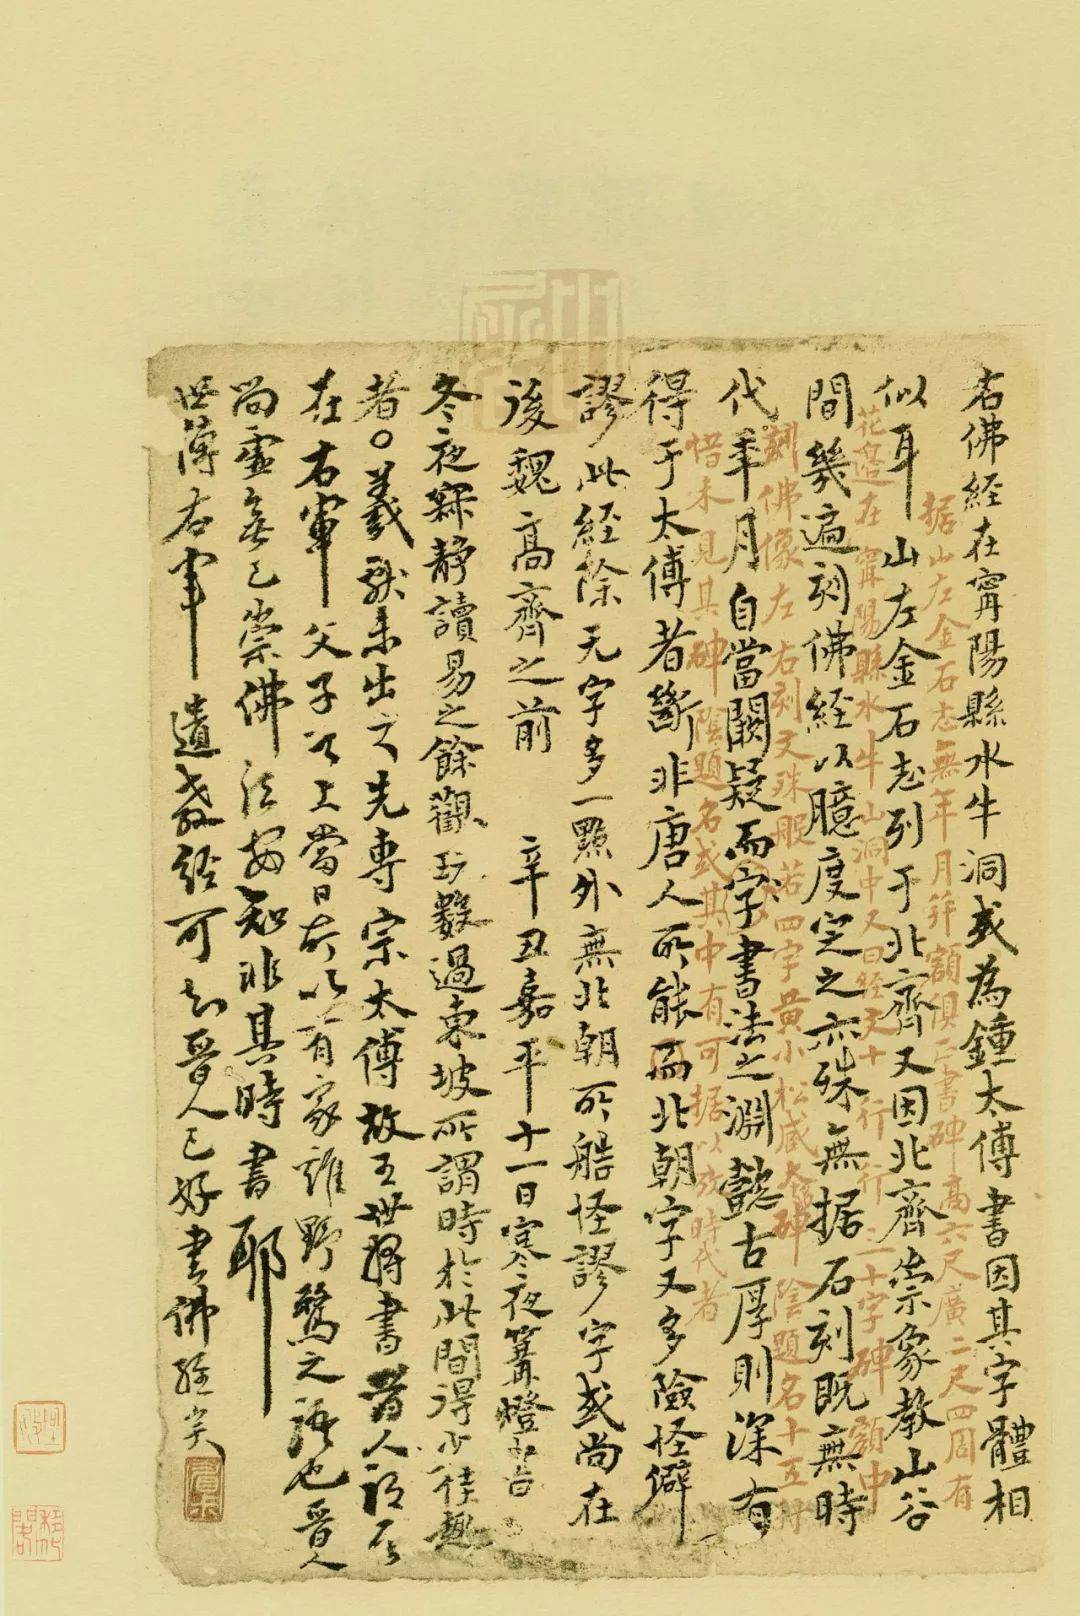 右佛經在甯陽縣水牛洞或為鍾太傅書因其字體相
据山左金石志無年月并額俱正書碑高六尺廣二尺四周有
似耳山左金石志列于北齊又因北齊崇象教山谷
花邊在甯陽縣水牛山洞中又曰經文十行行二十字碑額中
間幾遍刻佛經以臆度定之亦殊無据石刻既無時
刻佛像左右刻文殊般若四字黃小松藏本碑陰題名十五行
代年月自當闕疑而字書法之淵懿古厚則深有
惜未見其碑陰題名或其中有可据以攷時代者
得于太傅者斷非唐人所能而北朝字又多險怪僻
謬此經除无字多一點外無北朝所 怪謬字或尚在
後魏高齊之前 辛丑嘉平十一日寒夜篝燈書
冬夜寂靜讀易之餘觀 數過東坡所謂時於此間得少佳趣
者○羲獻未出之先專宗太傅故王世將書晉人謂
在右軍父子以上當日所以有家雞野鶩之語也晉人
尚虛無已崇佛法安知非其時書耶
世傳右軍遺教經可知晉人已好書佛經矣